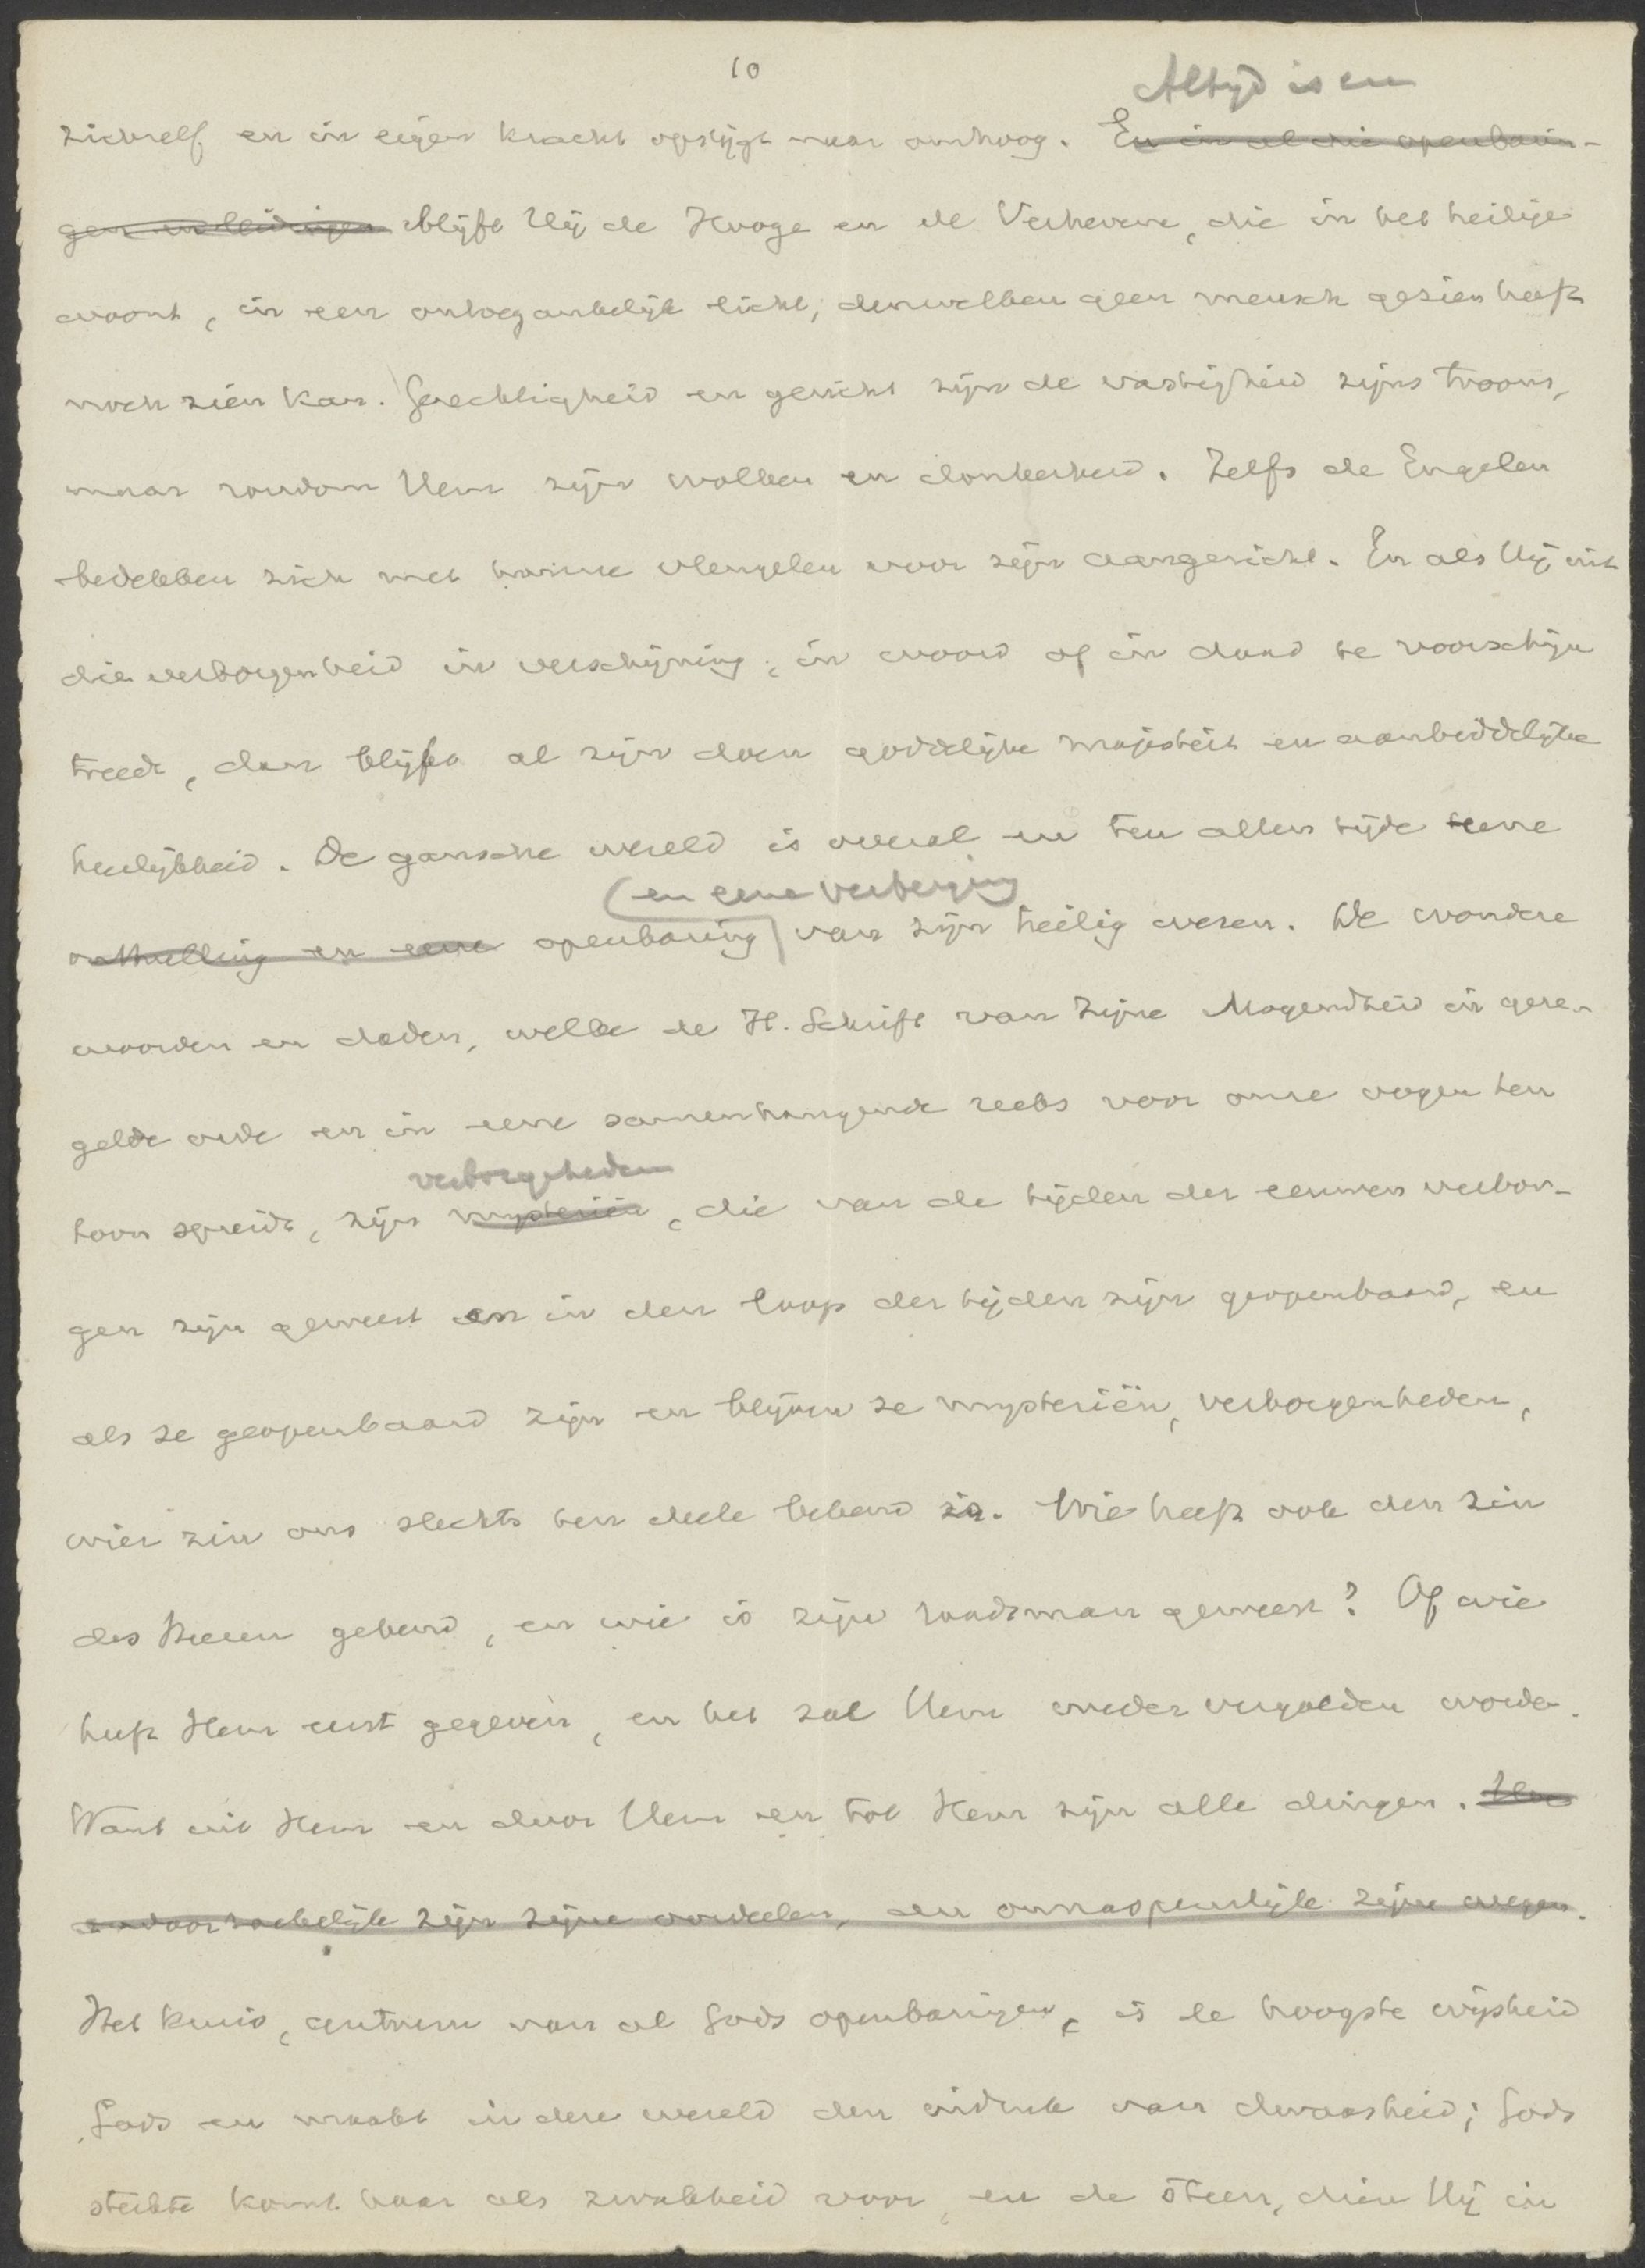 10
Altijd is en
zichzelf en in eigen kracht opstijgt naar omhoog. En in al die openbarin-
gen en leidingen blijft Hij de Hooge en de Verhevene, die in het heilige
woont, in een ontoegankelijk licht, denwelken geen mensch gezien heeft
noch zien kan. Gerechtigheid en gericht zijn de vastigheid zijns troons,
maar rondom Hem zijn wolken en donkerheid. Zelfs de Engelen
bedekken zich met hunne vleugelen voor zijn aangezicht. En als Hij uit
die verborgenheid in verschijning, in woord of in daad te voorschijn
treedt, dan blijft al zijn doen goddelijke majesteit en aanbiddelijke
heerlijkheid. De gansche wereld is overal en ten allen tijde eene
en eene verberging
onthulling en eene openbaring van zijn heilig wezen. De wondere
woorden en daden, welke de H. Schrift van Zijne Mogendheid in gere-
gelde orde en in eene samenhangende reeks voor onze oogen ten
verborgenheden
toon spreidt, zijn mysteriën, die van de tijden der eeuwen verbor-
gen zijn geweest en in den loop der tijden zijn geopenbaard, en
als ze geopenbaard zijn en blijven ze mysteriën, verborgenheden,
wier zin ons slechts ten deele bekend is. Wie heeft ook den zin
des Heeren gekend, en wie is zijn raadsman geweest? Of wie
heeft Hem eerst gegeven, en het zal Hem weder vergolden worden.
Want uit Hem en door Hem en tot Hem zijn alle dingen. Hoe
ondoorzoekelijk zijn zijne oordeelen, en onnaspeurlijk zijne wegen.
Het kruis, centrum van al Gods openbaringen, is de hoogste wijsheid
Gods en maakt in deze wereld den indruk van dwaasheid; Gods
sterkte komt haar als zwakheid voor, en de steen, dien Hij in